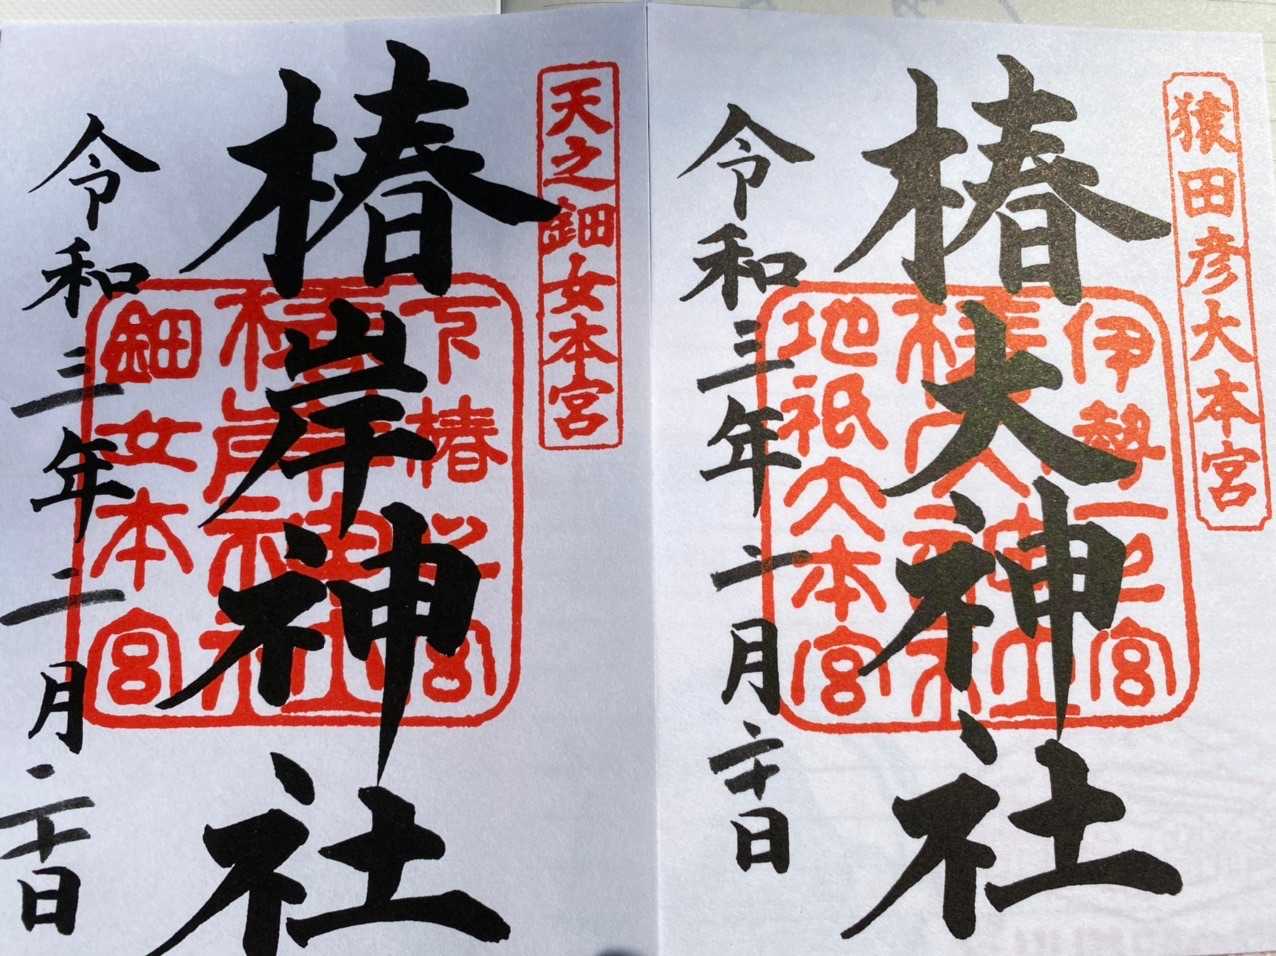 猿田彦大本宮
椿大神社
伊勢一之宮
椿大神社
地祇大本宮
令和三年二月二十日
天之鈿女本宮
椿岸神社
椿岸神社
鈿女本宮
令和三年二月二十日